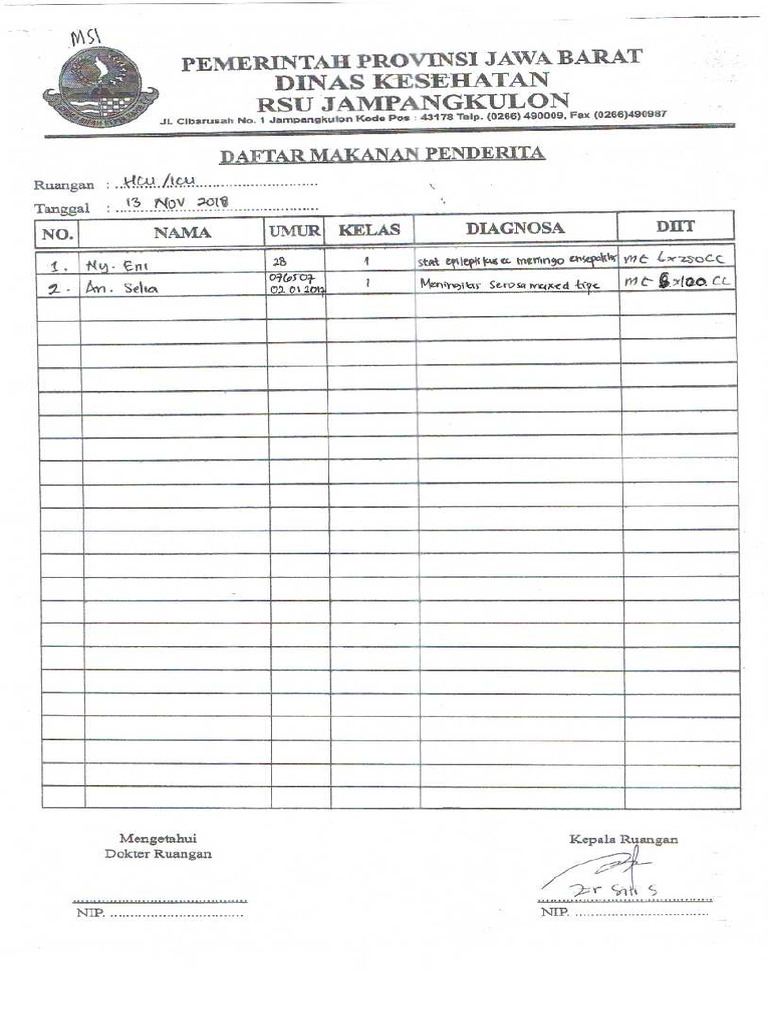 MSI
PEMERINTAH PROVINSI JAWA BARAT
DINAS KESEHATAN
RSU JAMPANGKULON
Jl. Cibarusah No. 1 Jampangkulon Kode Pos : 43178 Telp. (0266) 490009, Fax (0266)490987
DAFTAR MAKANAN PENDERITA
Ruangan : HCU /ICU
Tanggal : 13 NOV 2018
NO. NAMA UMUR KELAS DIAGNOSA DIIT
1. Ny. Eni 28 1 stat epileptikus ec meningo MC 6x250CC
2. An. 076507 02 01 2017 1 Meningitis Serosa tipe MC x100 CC
Mengetahui Kepala Ruangan
Dokter Ruangan
NIP. NIP.